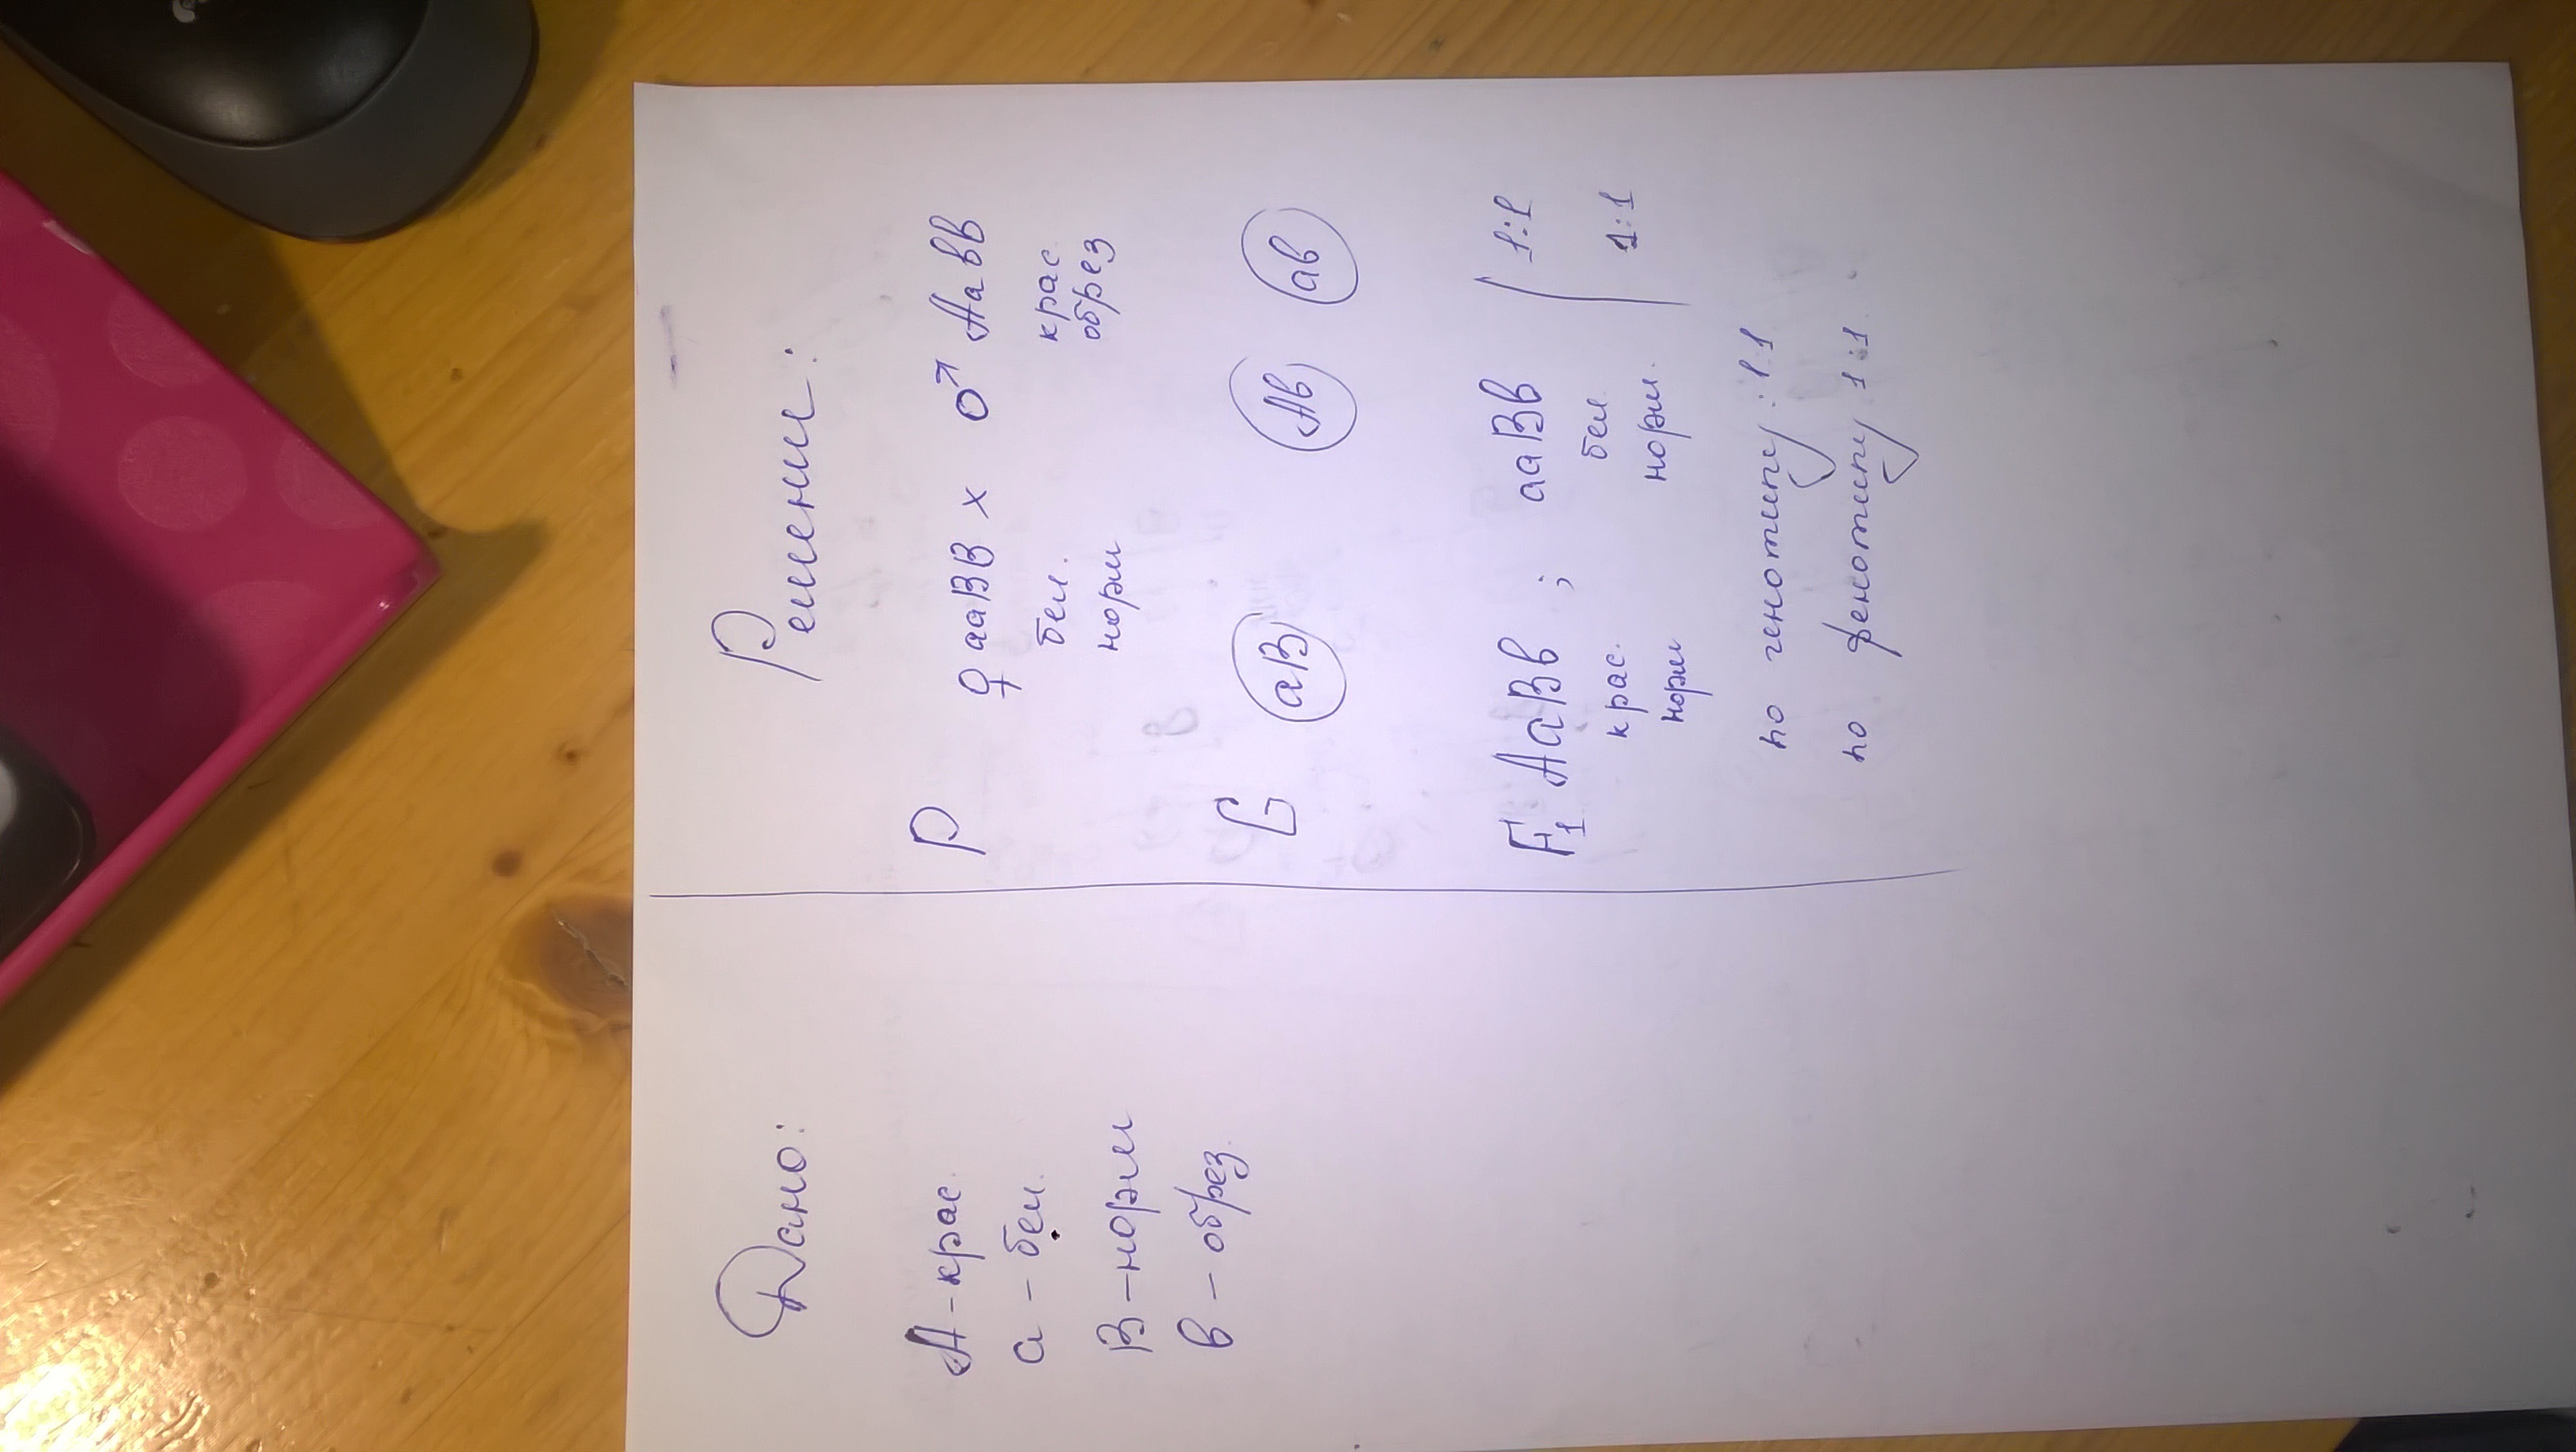 Дано:
А - крас.
а - бел.
В - норм
в - обрез.
Решение:
Р ♀ ааВВ х ♂ Аавв
бел. крас.
норм обрез
G аВ Ав ав
F1 АаВв ; ааВв 1:1
крас. бел. 1:1
норм норм.
по генотипу : 1:1
по фенотипу 1:1.